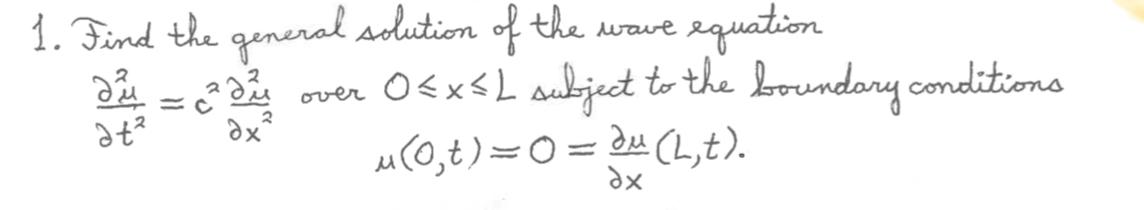 1. Find the general solution of the wave equation
∂²u/∂t² = c² ∂²u/∂x² over 0≤x≤L subject to the boundary conditions
u(0,t)=0=∂u/∂x(L,t).